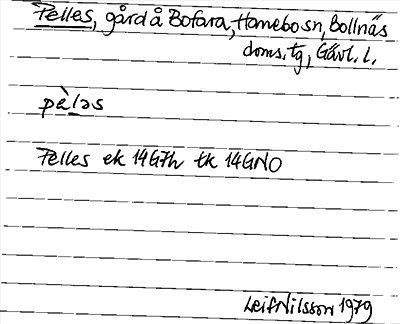 Pelles, gård å Bofara, Hanebo sn, Bollnäs
doms. tg, Gävl. l.
pèləs
Pelles ek 14G7h tk 14GNO
Leif Nilsson 1979